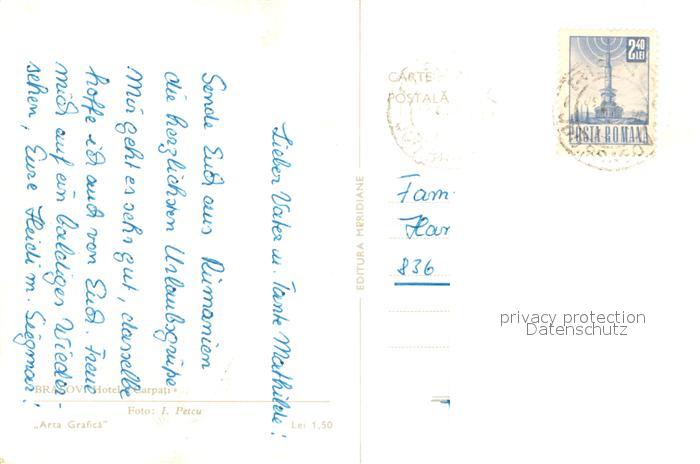 Lieber Vater u. Tante Mathilde!
Sende Euch aus Rumänien
die herzlichsten Urlaubsgrüße
Mir geht es sehr gut, dasselbe
hoffe ich auch von Euch. Freue
mich auf ein baldiges Wieder-
sehen, Eure Heidi m. Siegmar!
BRAȘOV Hotel „Carpați"
Foto: I. Petcu
„Arta Grafică"
Lei 1,50
EDITURA MERIDIANE
CARTE
POSTALĂ
2 40
LEI
POSTA ROMANA
Fam.
Har
836
privacy protection
Datenschutz